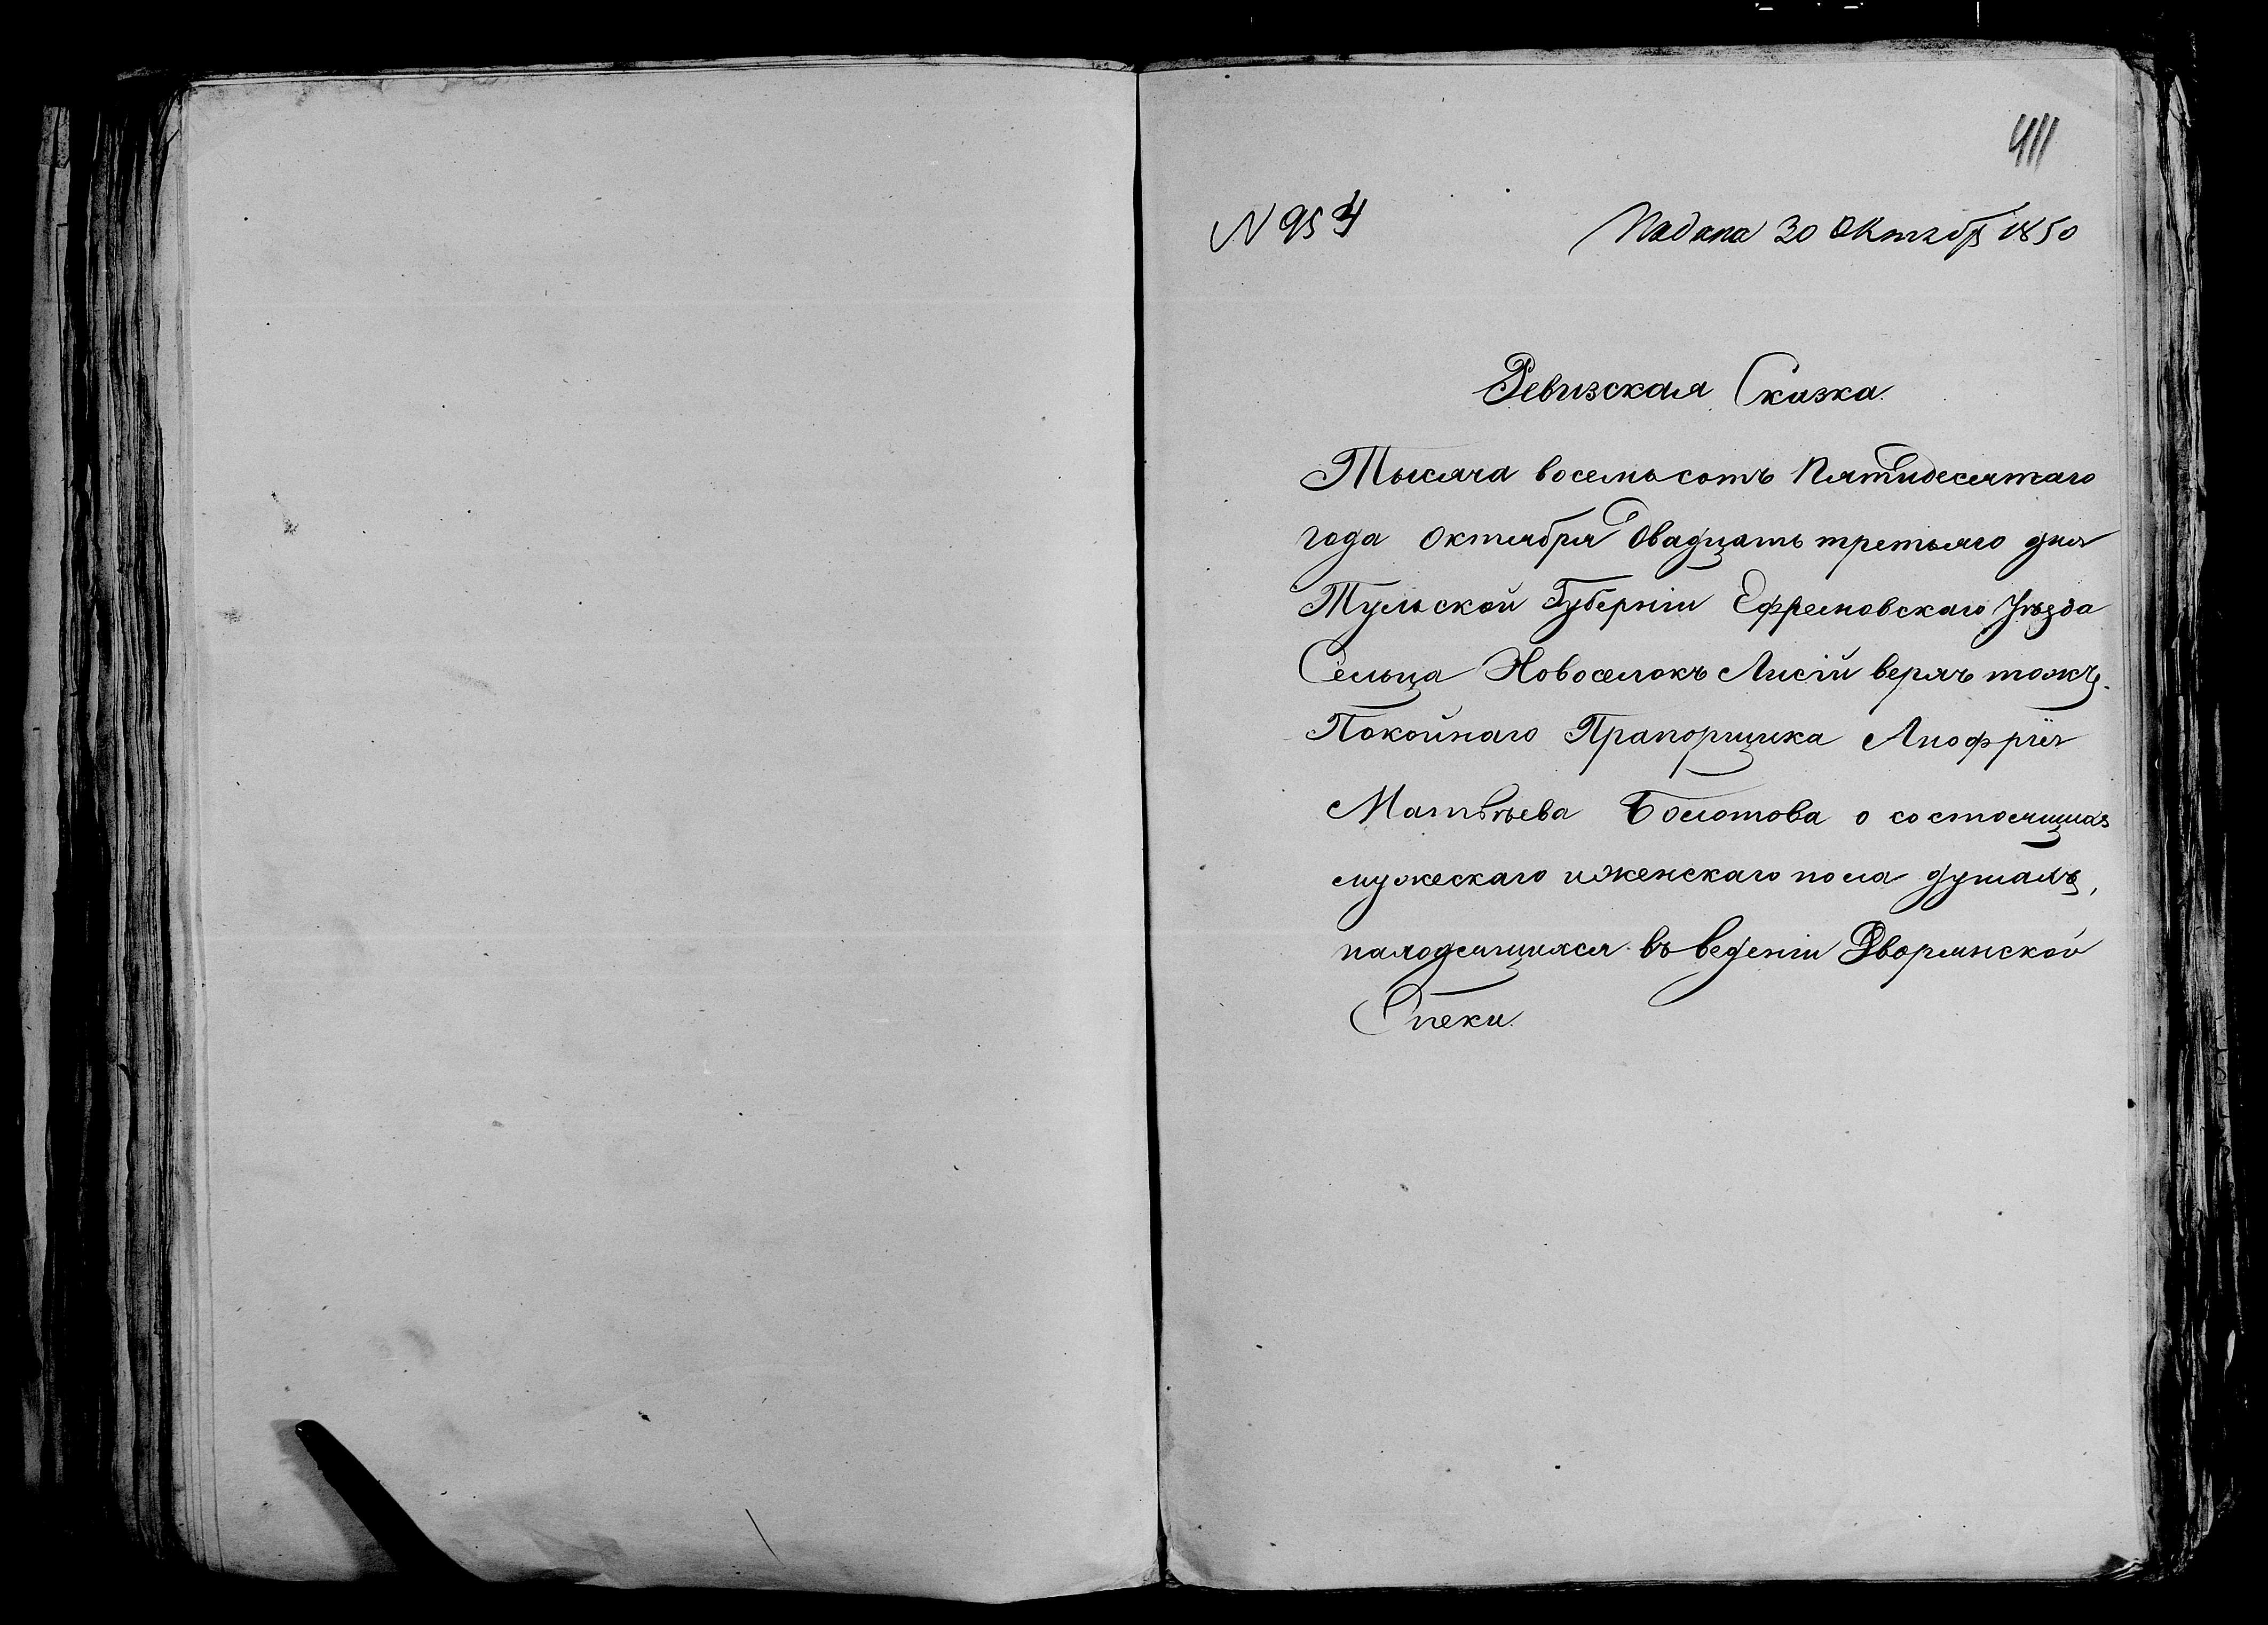 411
N 954
Подана 30 Октябр 1850
Ревизская Сказка.
Тысяча восемьсотъ Пятидесятаго
года Октября двадцать третьяго дня
Тульской Губерніи Ефремовскаго Уѣзда
Сельца Новоселокъ Лисій верхъ тожъ.
Покойнаго Прапорщика Анофрія
Матвѣева Болотова о состоящихъ
мужескаго и женскаго пола душахъ,
находящихся въ веденіи Дворянской
Опеки.